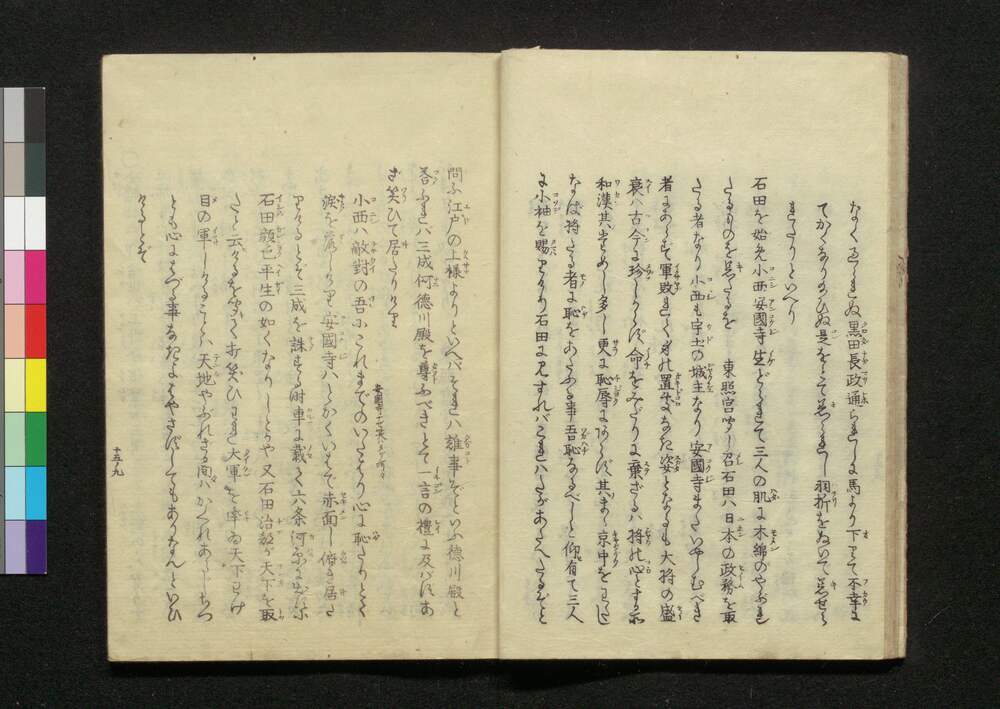 なく返られぬ黒田長政通られしに馬より下りて不幸に
てかくなり給ひぬ是をこそ着られし羽折をぬいて着せら
れたりといへり
石田を始め小西安國寺生どられて三人の肌に木綿のやぶれ
たるものを着たるを 東照宮聞し召石田ハ日本の政務を取
たる者なり小西も宇土の城主なり安國寺またいやしむべき
者にあらず軍敗れて身の置所なき姿となるも大将の盛
衰ハ古今に珍しからず命をみだりに棄ざるハ将の心とする所
和漢其ためし多し更に恥辱にあらず其まゝ京中をわたし
なば将たる者に恥をあたふる事吾恥なるべしと仰有て三人
に小袖を賜りけり石田に見すれバこれハたがあたへたるぞと
問ふ江戸の上様よりといへバそれハ誰事ぞといふ徳川殿と
答ふれハ三成何徳川殿を尊ふべきとて一言の禮に及バずあ
ざ笑ひて居たりけり
小西ハ敵對の吾にこれまでのいたはり心に恥たりとて
涙を流しけり安國寺ハしかくいはで赤面し俯き居た
りけるとぞ三成を誅する時車に載て六条河原に出たるに
石田顔色平生の如くなりしとかや又石田治部が天下を取
たると云々るを聞て打笑ひわれ大軍を率ゐ天下わけ
目の軍しけることハ天地やぶれざる間ハかくれあらじちつ
とも心にはづる事なきよはやさずしてもありなんといひ
けるとぞ
十五ノ九